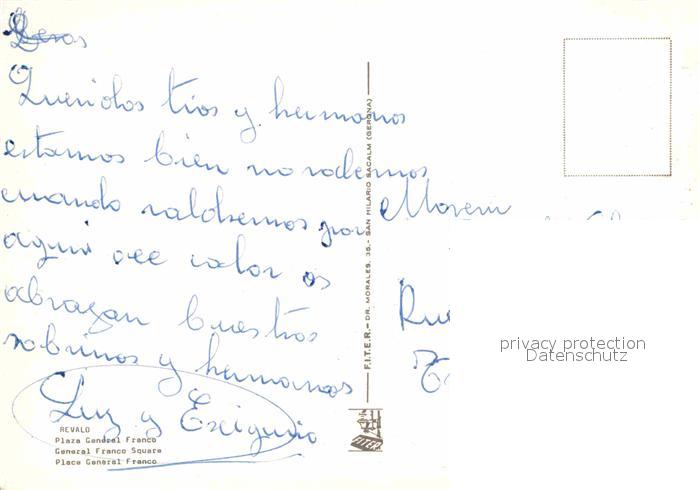 Queridos tios y hermanos
estamos bien no sabemos
cuando saldremos por
aqui ace calor os
abrazan buestros
sobrinos y hermanos
Luz y Exiquio
REVALO
Plaza General Franco
General Franco Square
Place General Franco
F.I.T.E.R.- DR. MORALES, 35.- SAN HILARIO SACALM (GERONA)
privacy protection
Datenschutz